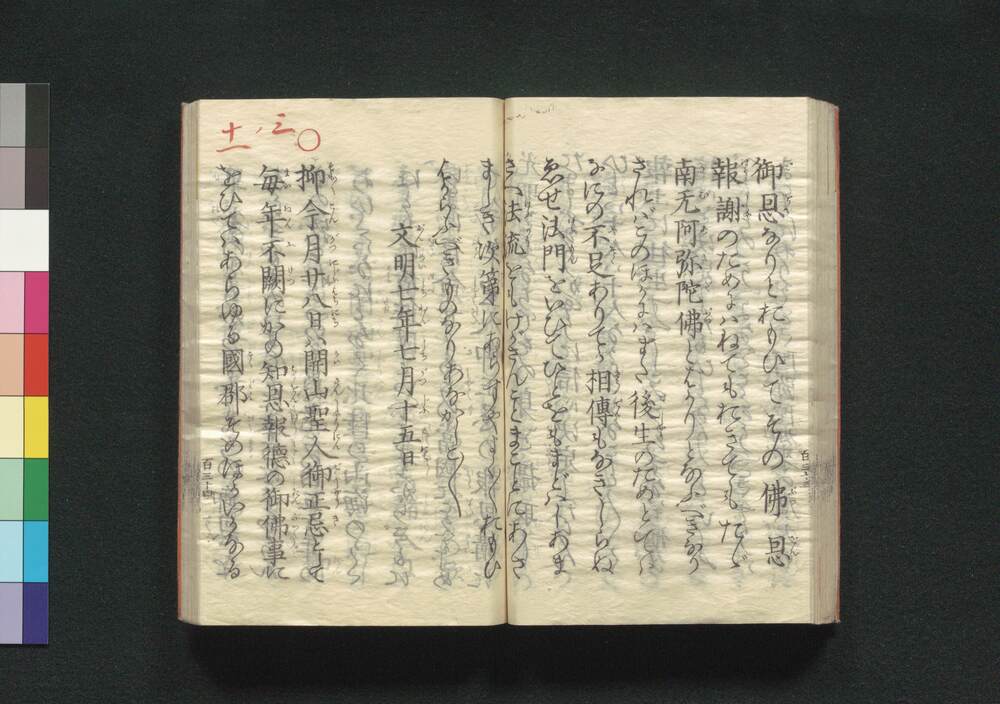 御恩なりとおもひてその佛恩
報謝のためにはねてもおきてもたゞ
南无阿弥陀佛とばかりとなふべきなり
さればこのほかにはまた後生のためとては
なにの不足ありてか相傳もなきしらぬ
ゑせ法門をいひてひとをもまどはしあま
さへ法流をもけがさんことまことにあさ
ましき次第にあらずやよく〱おもひ
はからふべきものなりあなかしこ〱
文明七年七月十五日
三ノ十一
抑今月廿八日は開山聖人御正忌として
毎年不闕にかの知恩報德の御佛事に
おひてはあらゆる國郡そのほかいかなる
百三十四